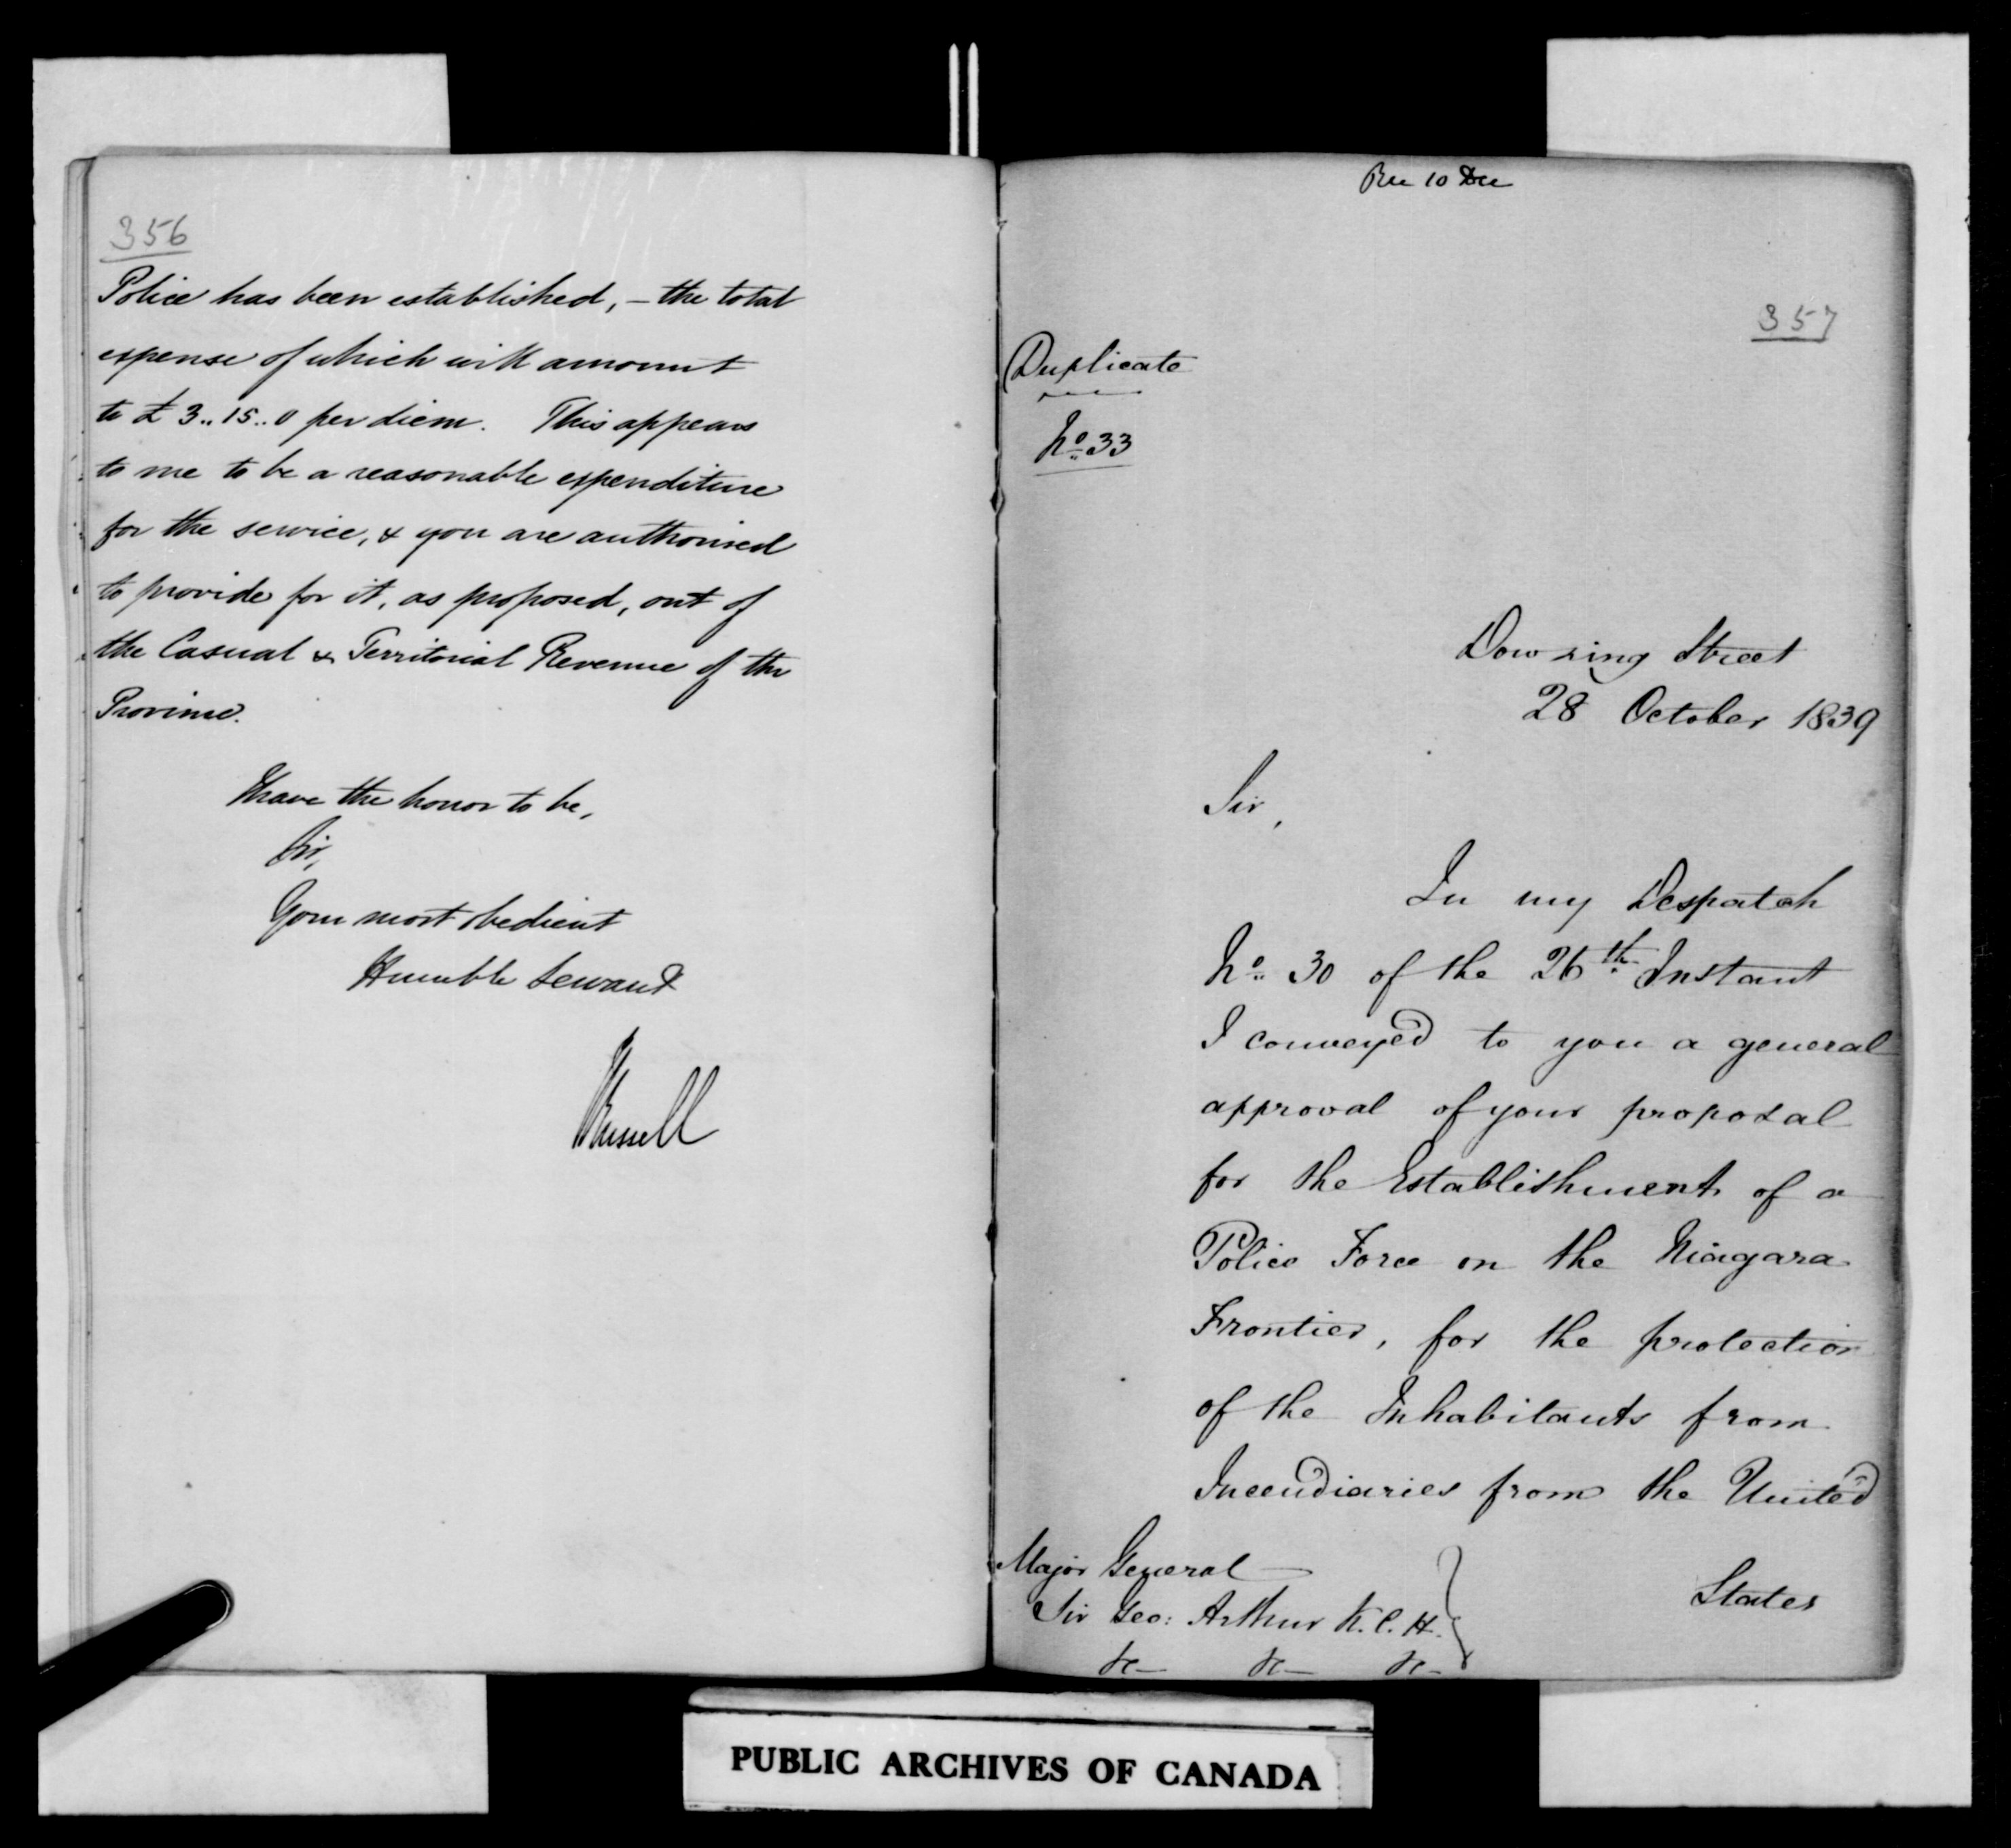 356
Police has been established, – the total
expense of which will amount
to £ 3.. 15.. 0 per diem. This appears
to me to be a reasonable expenditure
for the service, & you are authorised
to provide for it, as proposed, out of
the Casual & Territorial Revenue of the
Province.
I have the honor to be,
Sir,
Your most obedient
Humble Servant
J Russell
Rec 10 Dec
357
Duplicate
No. 33
Downing Street
28 October 1839
Sir,
In my Despatch
No. 30 of the 26th Instant
I conveyed to you a general
approval of your proposal
for the Establishment of a
Police Force on the Niagara
Frontier, for the protection
of the Inhabitants from
Incendiaries from the United
States
Major General
Sir Geo: Arthur K.C.H.
&c &c &c
PUBLIC ARCHIVES OF CANADA